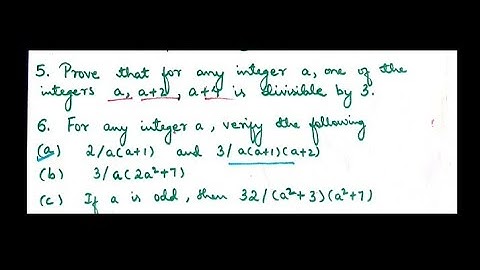 5. Prove that for any integer a, one of the
integers a, a+2, a+4 is divisible by 3.
6. For any integer a, verify the following
(a) 2/a(a+1) and 3/a(a+1)(a+2)
(b) 3/a(2a²+7)
(c) If a is odd, then 32/(a²+3)(a²+7)